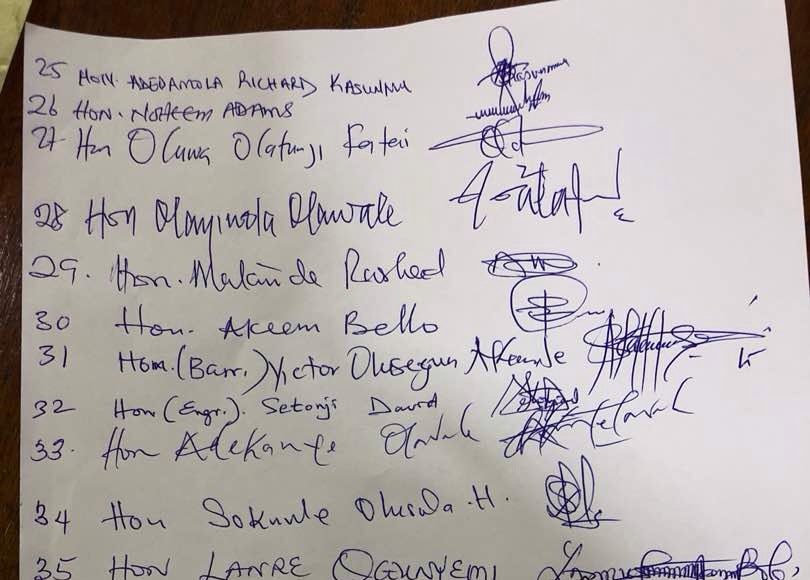 25 HON. ADEDAMOLA RICHARD KASUNMU
26 HON. NOHEEM ADAMS
27 Hon Oluwa Olatunji Fatai
28 Hon Olayinola Olawale
29. Hon. Rasheed
30 Hon. Akeem Bello
31 Hon. (Barr.) Victor Olusegun Akande
32 Hon (Engr.). Setonji David
33. Hon Adekanye Olawale
34 Hon Sokunle Olusola H.
35 HON LANRE OGUNYEMI